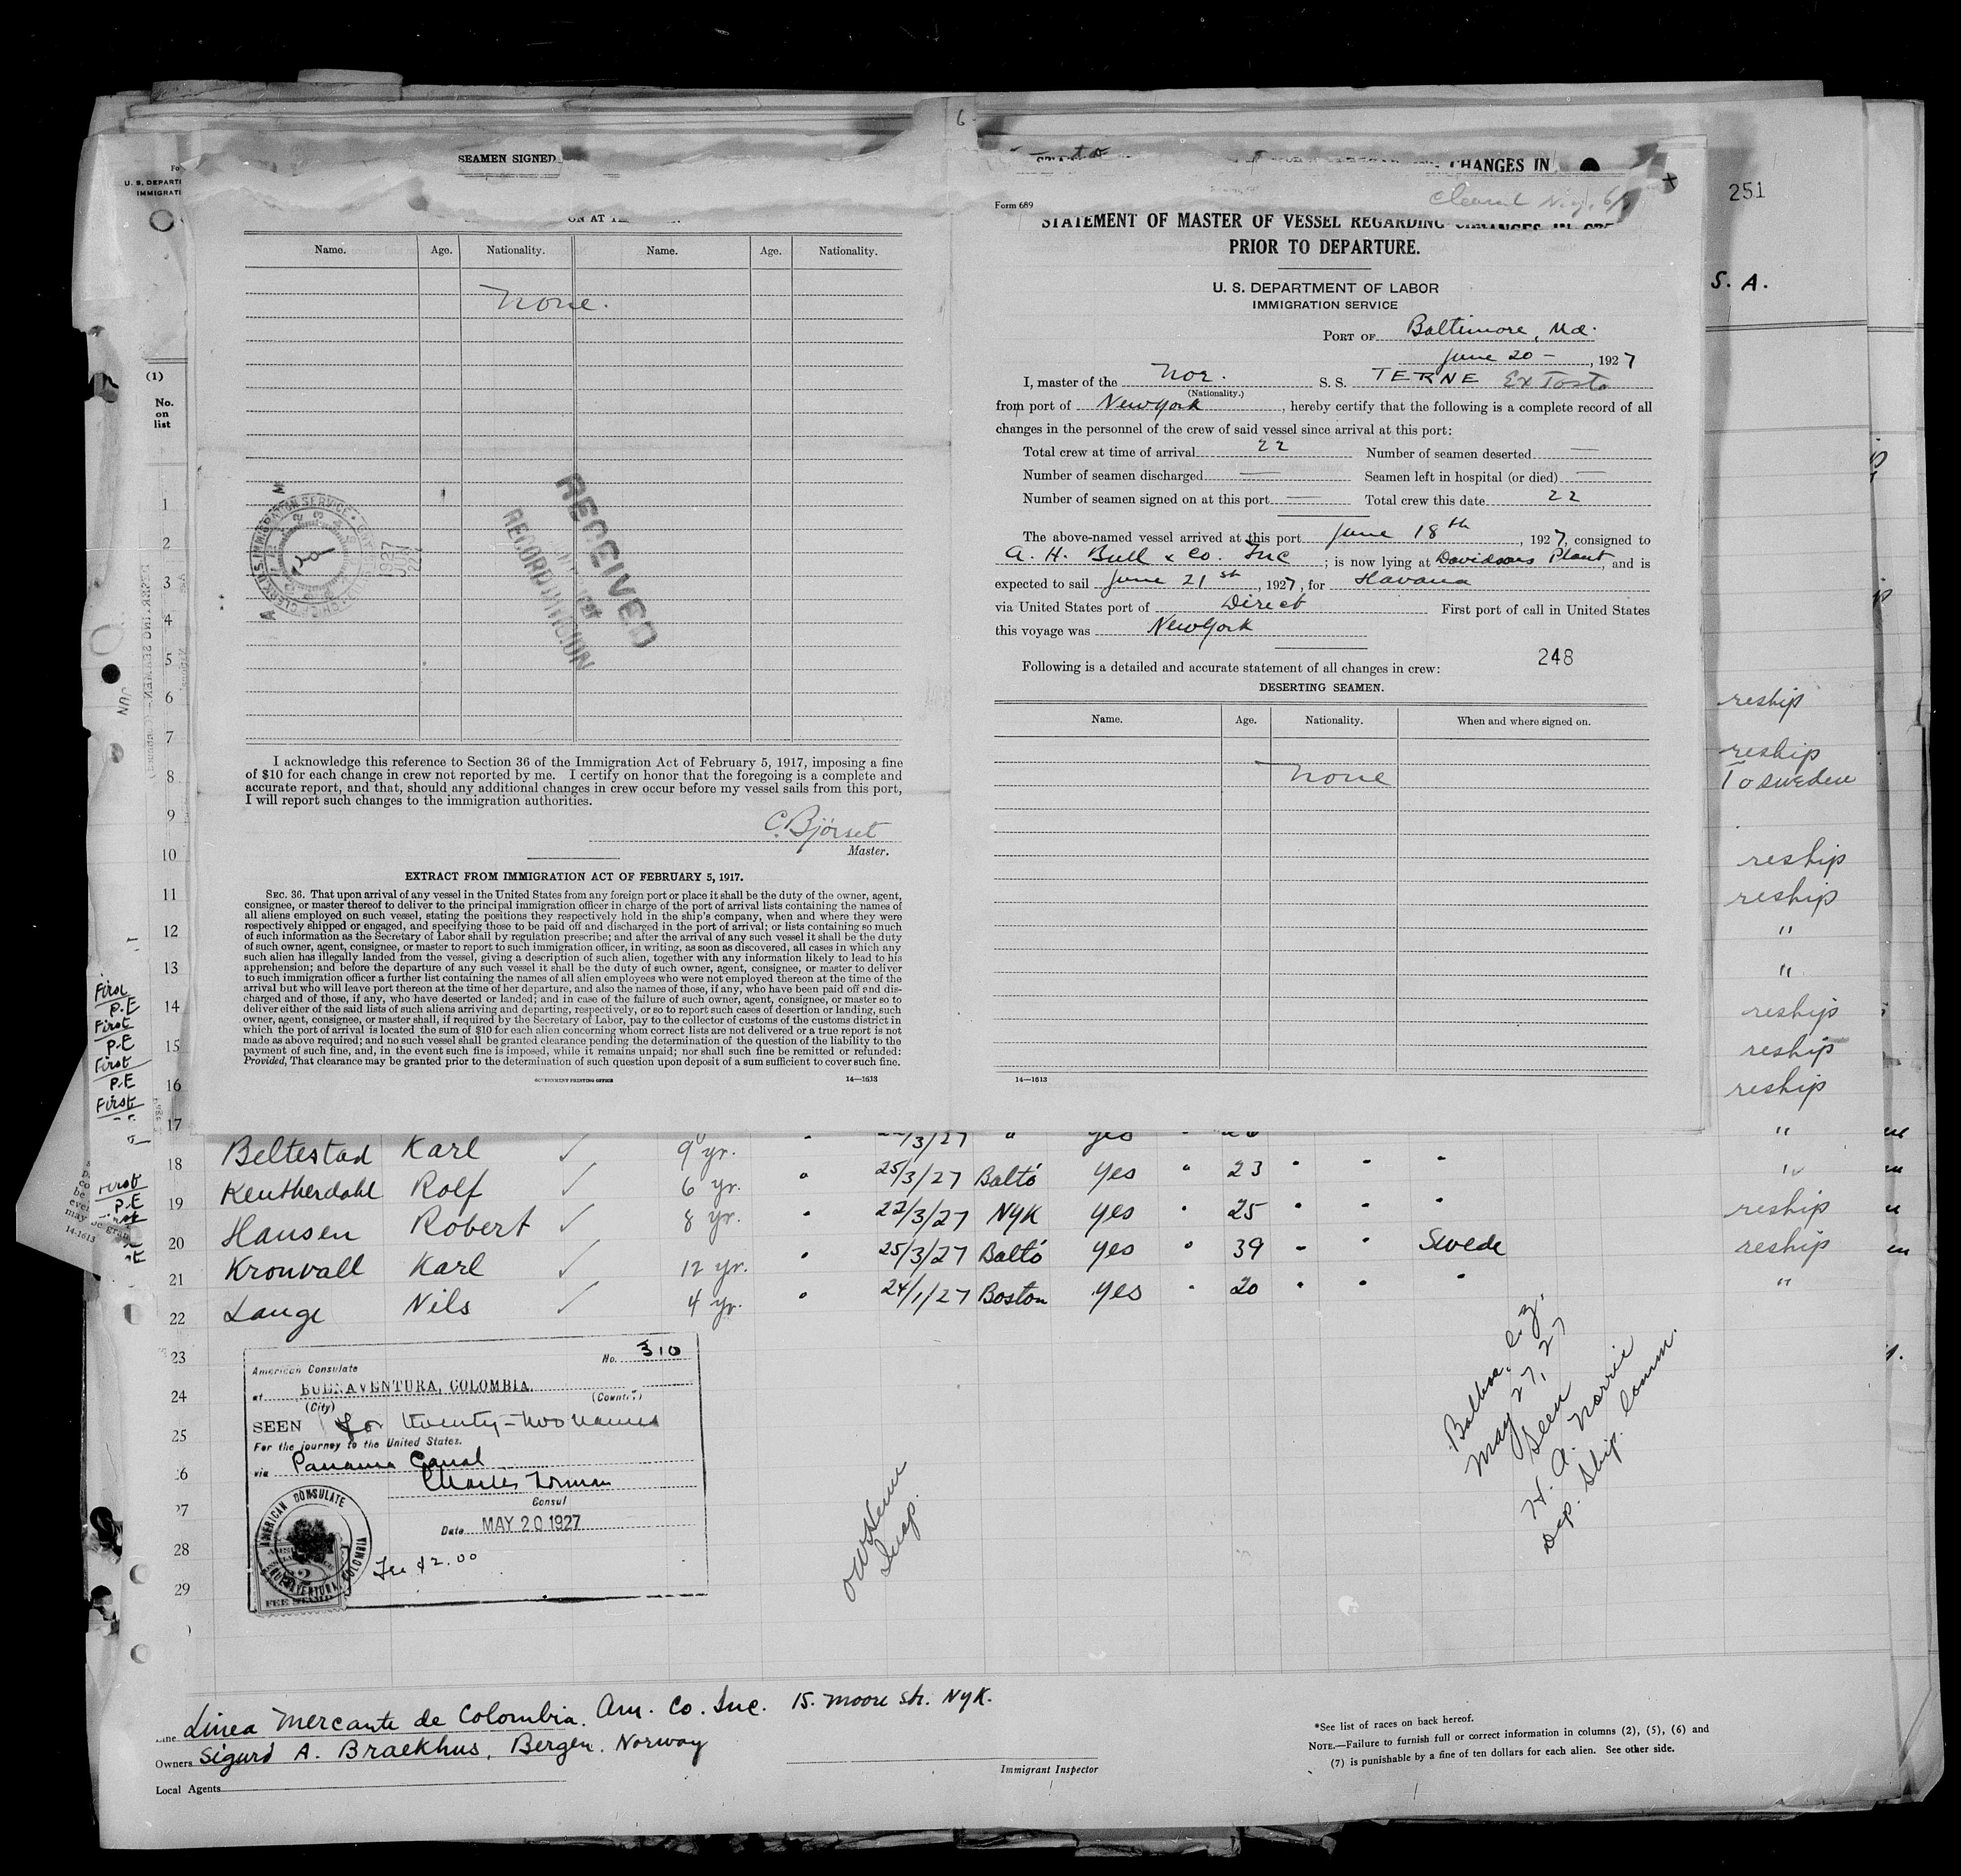 SEAMEN SIGNED
Name. Age. Nationality. Name. Age. Nationality.
None.
U. S. IMMIGRATION SERVICE
1927
RECEIVED
RECORD DIVISION
I acknowledge this reference to Section 36 of the Immigration Act of February 5, 1917, imposing a fine
of $10 for each change in crew not reported by me. I certify on honor that the foregoing is a complete and
accurate report, and that, should any additional changes in crew occur before my vessel sails from this port,
I will report such changes to the immigration authorities.
C. Bjorset
Master.
EXTRACT FROM IMMIGRATION ACT OF FEBRUARY 5, 1917.
SEC. 36. That upon arrival of any vessel in the United States from any foreign port or place it shall be the duty of the owner, agent,
consignee, or master thereof to deliver to the principal immigration officer in charge of the port of arrival lists containing the names of
all aliens employed on such vessel, stating the positions they respectively hold in the ship's company, when and where they were
respectively shipped or engaged, and specifying those to be paid off and discharged in the port of arrival; or lists containing so much
of such information as the Secretary of Labor shall by regulation prescribe; and after the arrival of any such vessel it shall be the duty
of such owner, agent, consignee, or master to report to such immigration officer, in writing, as soon as discovered, all cases in which any
such alien has illegally landed from the vessel, giving a description of such alien, together with any information likely to lead to his
apprehension; and before the departure of any such vessel it shall be the duty of such owner, agent, consignee, or master to deliver
to such immigration officer a further list containing the names of all alien employees who were not employed thereon at the time of the
arrival but who will leave port thereon at the time of her departure, and also the names of those, if any, who have been paid off and dis-
charged and of those, if any, who have deserted or landed; and in case of the failure of such owner, agent, consignee, or master so to
deliver either of the said lists of such aliens arriving and departing, respectively, or so to report such cases of desertion or landing, such
owner, agent, consignee, or master, shall, if required by the Secretary of Labor, pay to the collector of customs of the customs district in
which the port of arrival is located the sum of $10 for each alien concerning whom correct lists are not delivered or a true report is not
made as above required; and no such vessel shall be granted clearance pending the determination of the question of the liability to the
payment of such fine, and, in the event such fine is imposed, while it remains unpaid; nor shall such fine be remitted or refunded:
Provided, That clearance may be granted prior to the determination of such question upon deposit of a sum sufficient to cover such fine.
GOVERNMENT PRINTING OFFICE 14—1613
CHANGES IN
Form 689
STATEMENT OF MASTER OF VESSEL REGARDING CHANGES IN
PRIOR TO DEPARTURE.
U. S. DEPARTMENT OF LABOR
IMMIGRATION SERVICE
PORT OF Baltimore, Md.
June 20 —, 1927
I, master of the Nor. S. S. TERNE Ex Tosto
(Nationality.)
from port of New York, hereby certify that the following is a complete record of all
changes in the personnel of the crew of said vessel since arrival at this port:
Total crew at time of arrival 22 Number of seamen deserted —
Number of seamen discharged — Seamen left in hospital (or died) —
Number of seamen signed on at this port — Total crew this date 22
The above-named vessel arrived at this port June 18th, 1927, consigned to
A. H. Bull & Co. Inc; is now lying at Davidsons Plant, and is
expected to sail June 21st, 1927, for Havana
via United States port of Direct First port of call in United States
this voyage was New York
248
Following is a detailed and accurate statement of all changes in crew:
DESERTING SEAMEN.
Name. Age. Nationality. When and where signed on.
None
14—1613
251
S. A.
(1)
No.
on
list
1
2
3
4
5
6
7
8
9
10
11
12
13
14
15
16
17
reship
reship
To Sweden
reship
reship
"
"
reship
reship
reship
"
First
P.E
First
P.E
First
P.E
First
18 Beltestad Karl ✓ 9 yr.
19 Kentherdahl Rolf ✓ 6 yr. 25/3/27 Balto yes " 23 " " "
20 Hansen Robert ✓ 8 yr. " 22/3/27 NYK yes " 25 " " " reship
21 Kronvall Karl ✓ 12 yr. " 25/3/27 Balto yes " 39 " " Swede reship
22 Lange Nils ✓ 4 yr. " 24/1/27 Boston yes " 20 " " " "
23
24
25
26
27
28
29
American Consulate No. 310
at BUENAVENTURA, COLOMBIA.
(City) (Country)
SEEN for twenty-two names
For the journey to the United States.
via Panama Canal
Charles Forman
Consul
Date MAY 20 1927
AMERICAN CONSULATE
BUENAVENTURA, COLOMBIA
FEE STAMP
Fee $2.00
Insp.
Balboa, C.Z.
May 27, 27
Seen
H. A. Norris
Dep. Ship. Comm.
Linea Mercante de Colombia. Am. Co. Inc. 15. Moore Str. NYK.
Owners Sigurd A. Braekhus, Bergen. Norway
Local Agents
Immigrant Inspector
*See list of races on back hereof.
NOTE.—Failure to furnish full or correct information in columns (2), (5), (6) and
(7) is punishable by a fine of ten dollars for each alien. See other side.